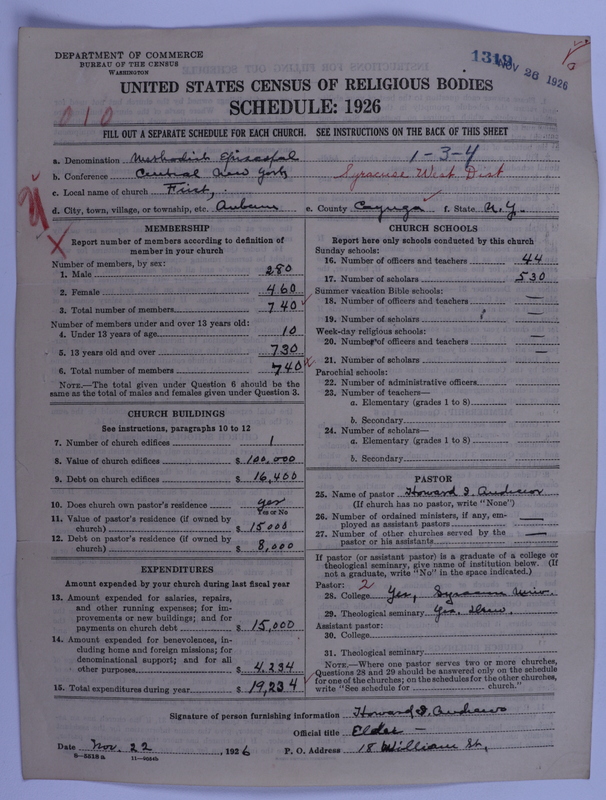 DEPARTMENT OF COMMERCE
BUREAU OF THE CENSUS
WASHINGTON
1319
NOV 26 1926
UNITED STATES CENSUS OF RELIGIOUS BODIES
SCHEDULE: 1926
010
FILL OUT A SEPARATE SCHEDULE FOR EACH CHURCH. SEE INSTRUCTIONS ON THE BACK OF THIS SHEET
a. Denomination Methodist Episcopal 1-3-4
b. Conference Central New York Syracuse West Dist
c. Local name of church First,
d. City, town, village, or township, etc. Auburn e. County Cayuga f. State N.Y.
MEMBERSHIP
Report number of members according to definition of
member in your church
Number of members, by sex:
1. Male 280
2. Female 460
3. Total number of members 740
Number of members under and over 13 years old:
4. Under 13 years of age 10
5. 13 years old and over 730
6. Total number of members 740
NOTE.—The total given under Question 6 should be the
same as the total of males and females given under Question 3.
CHURCH BUILDINGS
See instructions, paragraphs 10 to 12
7. Number of church edifices 1
8. Value of church edifices $ 100,000
9. Debt on church edifices $ 16,400
10. Does church own pastor's residence yes
Yes or No
11. Value of pastor's residence (if owned by
church) $ 15000
12. Debt on pastor's residence (if owned by
church) $ 8,000
EXPENDITURES
Amount expended by your church during last fiscal year
13. Amount expended for salaries, repairs,
and other running expenses; for im-
provements or new buildings; and for
payments on church debt $ 15,000
14. Amount expended for benevolences, in-
cluding home and foreign missions; for
denominational support; and for all
other purposes $ 4,234
15. Total expenditures during year $ 19,234
CHURCH SCHOOLS
Report here only schools conducted by this church
Sunday schools:
16. Number of officers and teachers 44
17. Number of scholars 530
Summer vacation Bible schools:
18. Number of officers and teachers —
19. Number of scholars —
Week-day religious schools:
20. Number of officers and teachers —
21. Number of scholars —
Parochial schools:
22. Number of administrative officers
23. Number of teachers—
a. Elementary (grades 1 to 8)
b. Secondary
24. Number of scholars—
a. Elementary (grades 1 to 8)
b. Secondary
PASTOR
25. Name of pastor Howard I. Andrews
(If church has no pastor, write "None")
26. Number of ordained ministers, if any, em-
ployed as assistant pastors —
27. Number of other churches served by the
pastor or his assistants —
If pastor (or assistant pastor) is a graduate of a college or
theological seminary, give name of institution below. (If
not a graduate, write "No" in the space indicated.)
Pastor: 2
28. College Yes, Syracuse Univ.
29. Theological seminary Yes. Drew.
Assistant pastor:
30. College
31. Theological seminary
NOTE.—Where one pastor serves two or more churches,
Questions 28 and 29 should be answered only on the schedule
for one of the churches; on the schedules for the other churches,
write "See schedule for church."
Signature of person furnishing information Howard I. Andrews
Official title Elder —
Date Nov. 22, 1926 P. O. Address 18 William St,
6—5518 a 11—9684b